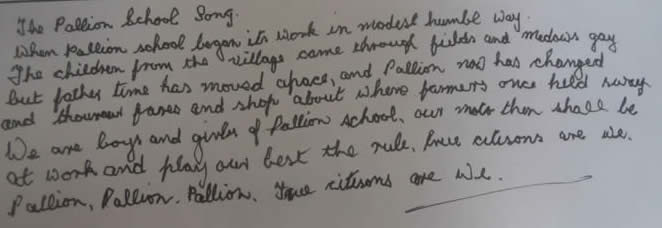 The Pallion School Song.
When Pallion school began its work in modest humbl way.
The children from the village came through fields and medows gay
but father time has moved apace, and Pallion now has changed
and thourow fares and shop about where farmers once held sway
We are boys and girls of Pallion school, our moto then shall be
at work and play our best the rule, true citisons are we.
Pallion, Pallion. Pallion. True citisons are we.